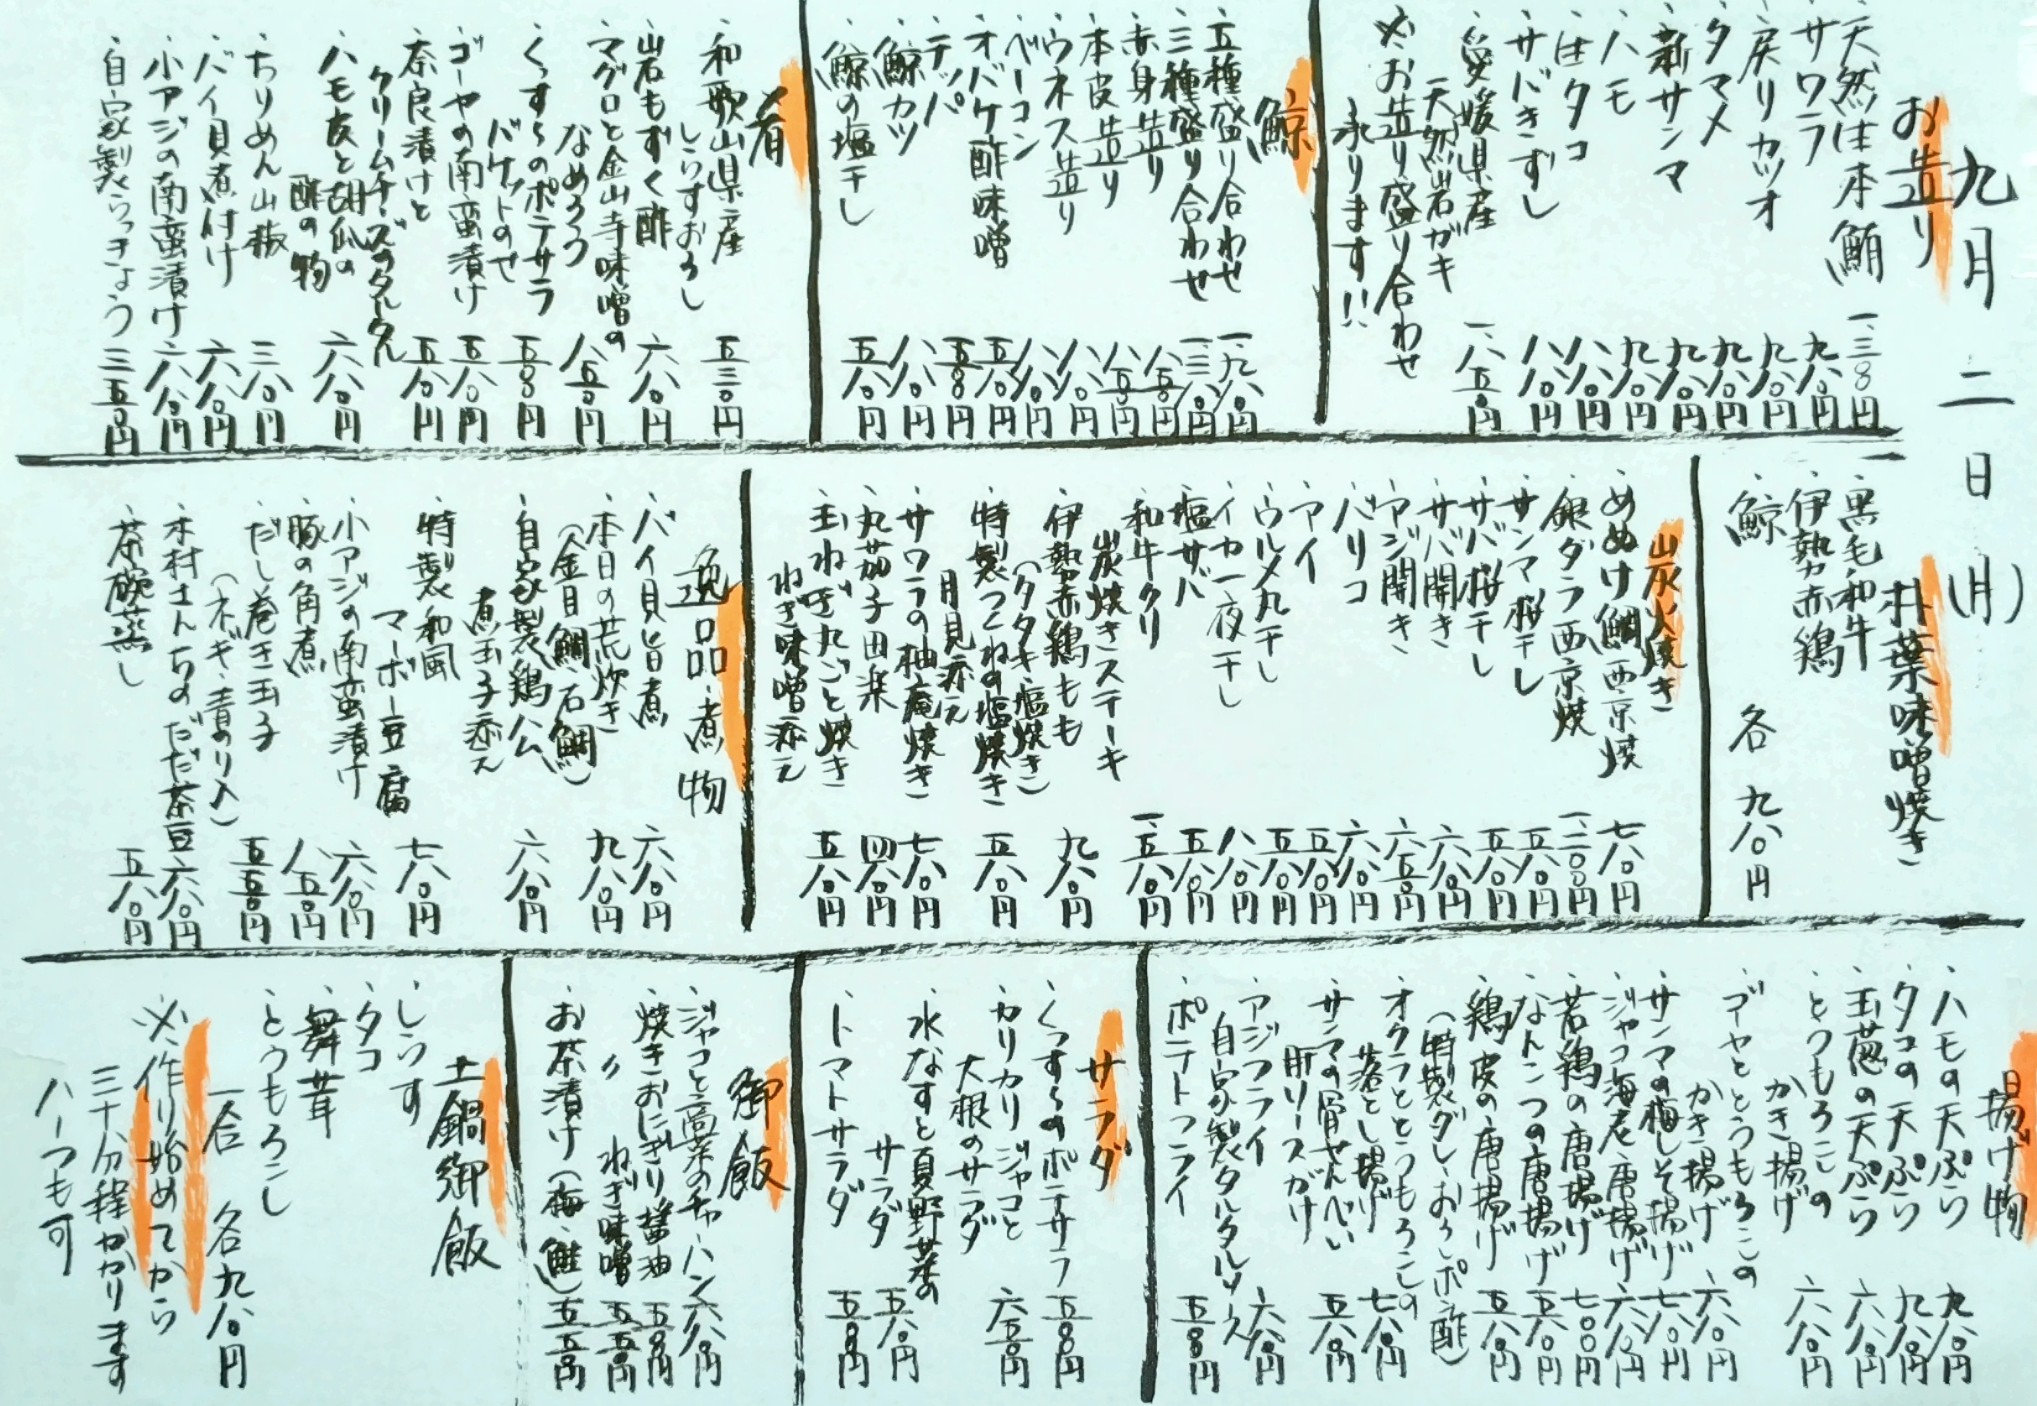 九月二日(月)
お造り
・天然生本鮪 一、三八〇円
・サワラ 九八〇円
・戻りカツオ 九八〇円
・タマメ 九八〇円
・新サンマ 九八〇円
・ハモ 九八〇円
・生タコ 八八〇円
・サバきずし 八八〇円
・愛媛県産
天然岩ガキ 一、八五〇円
※お造り盛り合わせ
承ります!!
鯨
・五種盛り合わせ 一、九八〇円
・三種盛り合わせ 一、三八〇円
・赤身造り 八五〇円
・本皮造り 八五〇円
・ウネス造り 八八〇円
・ベーコン 八八〇円
・オバケ酢味噌 五八〇円
・テッパ 五五〇円
・鯨カツ 八八〇円
・鯨の塩干し 五八〇円
肴
・和歌山県産
しらすおろし 五三〇円
・岩もずく酢 六八〇円
・マグロと金山寺味噌の
なめろう 八五〇円
・くっすらのポテサラ
バケットのせ 五五〇円
・ゴーヤの南蛮漬け 五八〇円
・奈良漬けと
クリームチーズのタルタル 五八〇円
・ハモ皮と胡瓜の
酢の物 六八〇円
・ちりめん山椒 三八〇円
・バイ貝煮付け 六八〇円
・小アジの南蛮漬け 六八〇円
・自家製らっきょう 三五〇円
朴葉味噌焼き
・黒毛和牛
・伊勢赤鶏
・鯨
各九八〇円
炭火焼き
・めぬけ鯛西京焼 七八〇円
・銀ダラ西京焼 一、二〇〇円
・サンマ桜干し 五八〇円
・サバ桜干し 五八〇円
・サバ開き 六八〇円
・アジ開き 六五〇円
・バリコ 六八〇円
・アイ 五八〇円
・ウルメ丸干し 五八〇円
・イカ一夜干し 八八〇円
・塩サバ 五八〇円
・和牛クリ
炭焼きステーキ 一、五八〇円
・伊勢赤鶏もも
(タタキ・塩焼き) 九八〇円
・特製つくねの塩焼き
月見添え 五八〇円
・サワラの柚庵焼き 七八〇円
・丸茄子田楽 四八〇円
・玉ねぎ丸ごと焼き
ねぎ味噌添え 五八〇円
逸品・煮物
・バイ貝旨煮 六八〇円
・本日の荒炊き
(金目鯛・石鯛) 九八〇円
・自家製鶏公
煮玉子添え 六八〇円
・特製和風
マーボー豆腐 七八〇円
・小アジの南蛮漬け 六八〇円
・豚の角煮 八五〇円
・だし巻き玉子
(ネギ・青のり入) 五五〇円
・木村さんちのだだ茶豆 六八〇円
・茶碗蒸し 五八〇円
揚げ物
・ハモの天ぷら 九八〇円
・タコの天ぷら 九八〇円
・玉葱の天ぷら 六八〇円
・とうもろこしの
かき揚げ 六八〇円
・ゴーヤととうもろこしの
かき揚げ 六八〇円
・サンマの梅しそ揚げ 七八〇円
・ジャコ海老唐揚げ 六八〇円
・若鶏の唐揚げ 七〇〇円
・なんこつの唐揚げ 五八〇円
・鶏皮の唐揚げ 五八〇円
(特製ダレ・おろしポン酢)
・オクラととうもろこしの
落とし揚げ 七八〇円
・サンマの骨せんべい
肝ソースがけ 五八〇円
・アジフライ
自家製タルタルソース 六八〇円
・ポテトフライ 五五〇円
サラダ
・くっすらのポテサラ 五五〇円
・カリカリジャコと
大根のサラダ 六五〇円
・水なすと夏野菜の
サラダ 五八〇円
・トマトサラダ 五五〇円
御飯
・ジャコと高菜のチャーハン 六八〇円
・焼きおにぎり醤油 五五〇円
・〃 ねぎ味噌 五五〇円
・お茶漬け(梅・鮭) 五五〇円
土鍋御飯
・しらす
・タコ
・舞茸
・とうもろこし
一合 各九八〇円
※作り始めてから
三十分程かかります
ハーフも可